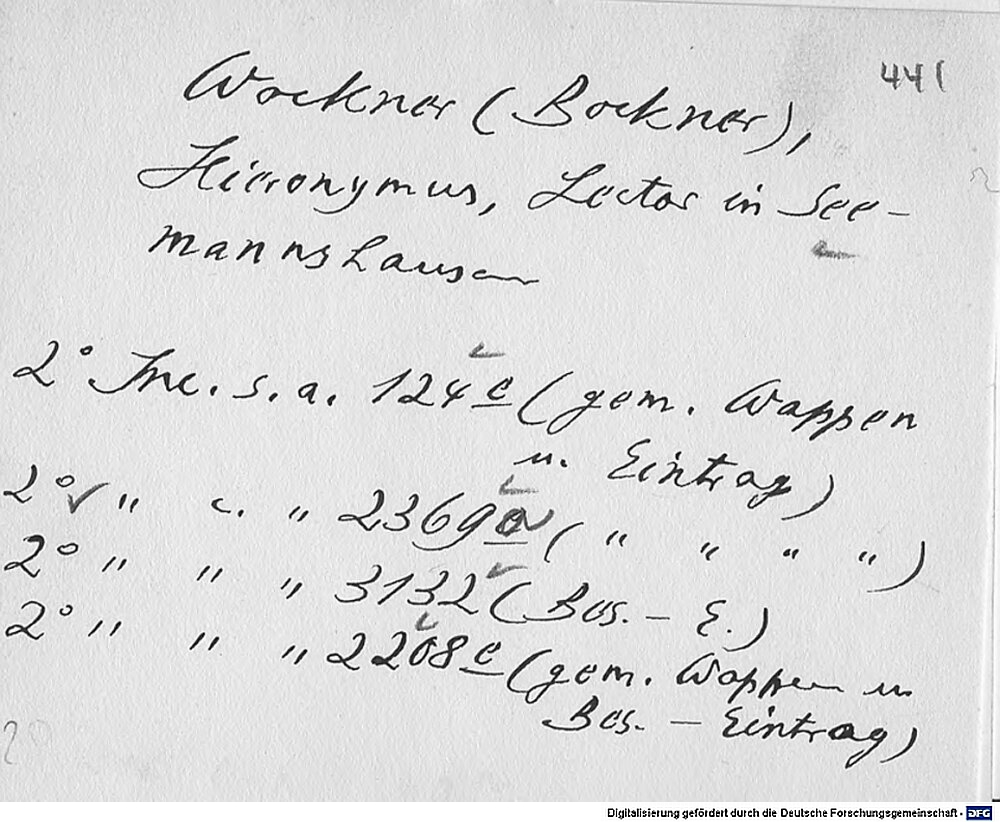 441
Wockner (Bockner),
Hieronymus, Lector in See-
mannshausen
2° Inc. s. a. 124 c (gem. Wappen
u. Eintrag)
2° " c. " 2369 a ( " " " " )
2° " " " 3132 (Bes. - E.)
2° " " " 2208 c (gem. Wappen u.
Bes. - Eintrag)
20
Digitalisierung gefördert durch die Deutsche Forschungsgemeinschaft - DFG